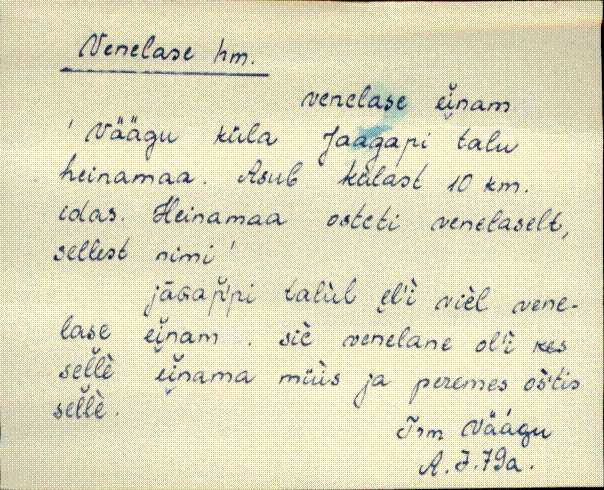 Venelase hm.
venelase ei̯nam
' Väägu küla Jaagapi talu
heinamaa. Asub külast 10 km.
idas. Heinamaa osteti venelaselt,
sellest nimi '
jāGaṕpi talùl el'i vièl vene-
lase ei̯nam . siè venelane ol'i kes
sellè ei̯nama müüs ja peremes ośtis
sellè.
Trm Väägu
A. J. 79a.